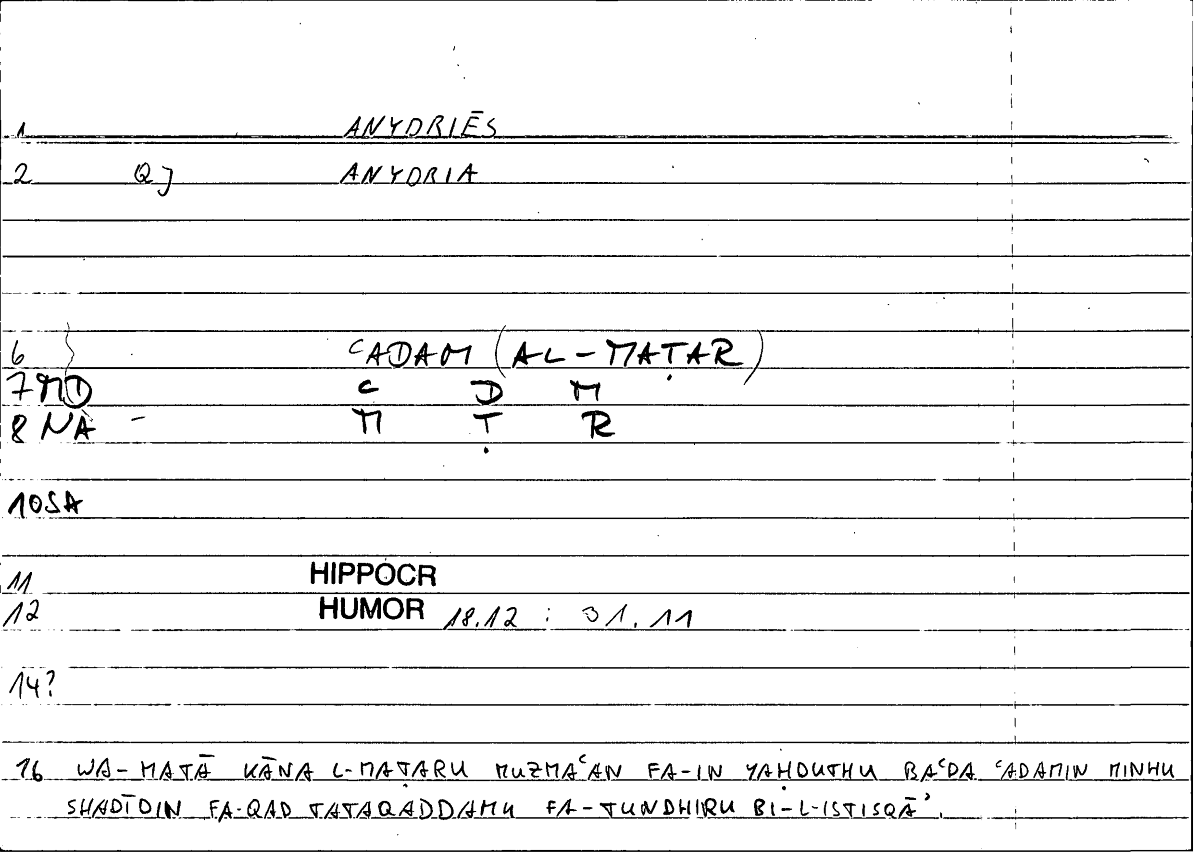 1 ANYDRIĒS
2 QJ ANYDRIA
6 ʿADAM (AL-MAṬAR)
7 MD ʿ D M
8 NA - M Ṭ R
10 SA
11 HIPPOCR
12 HUMOR 18.12 : 31.11
14?
16 WA-MATĀ KĀNA L-MAṬARU MUZMAʿAN FA-IN YAḤDUTHU BAʿDA ʿADAMIN MINHU
SHADĪDIN FA-QAD TATAQADDAMU FA-TUNDHIRU BI-L-ISTISQĀʾ.